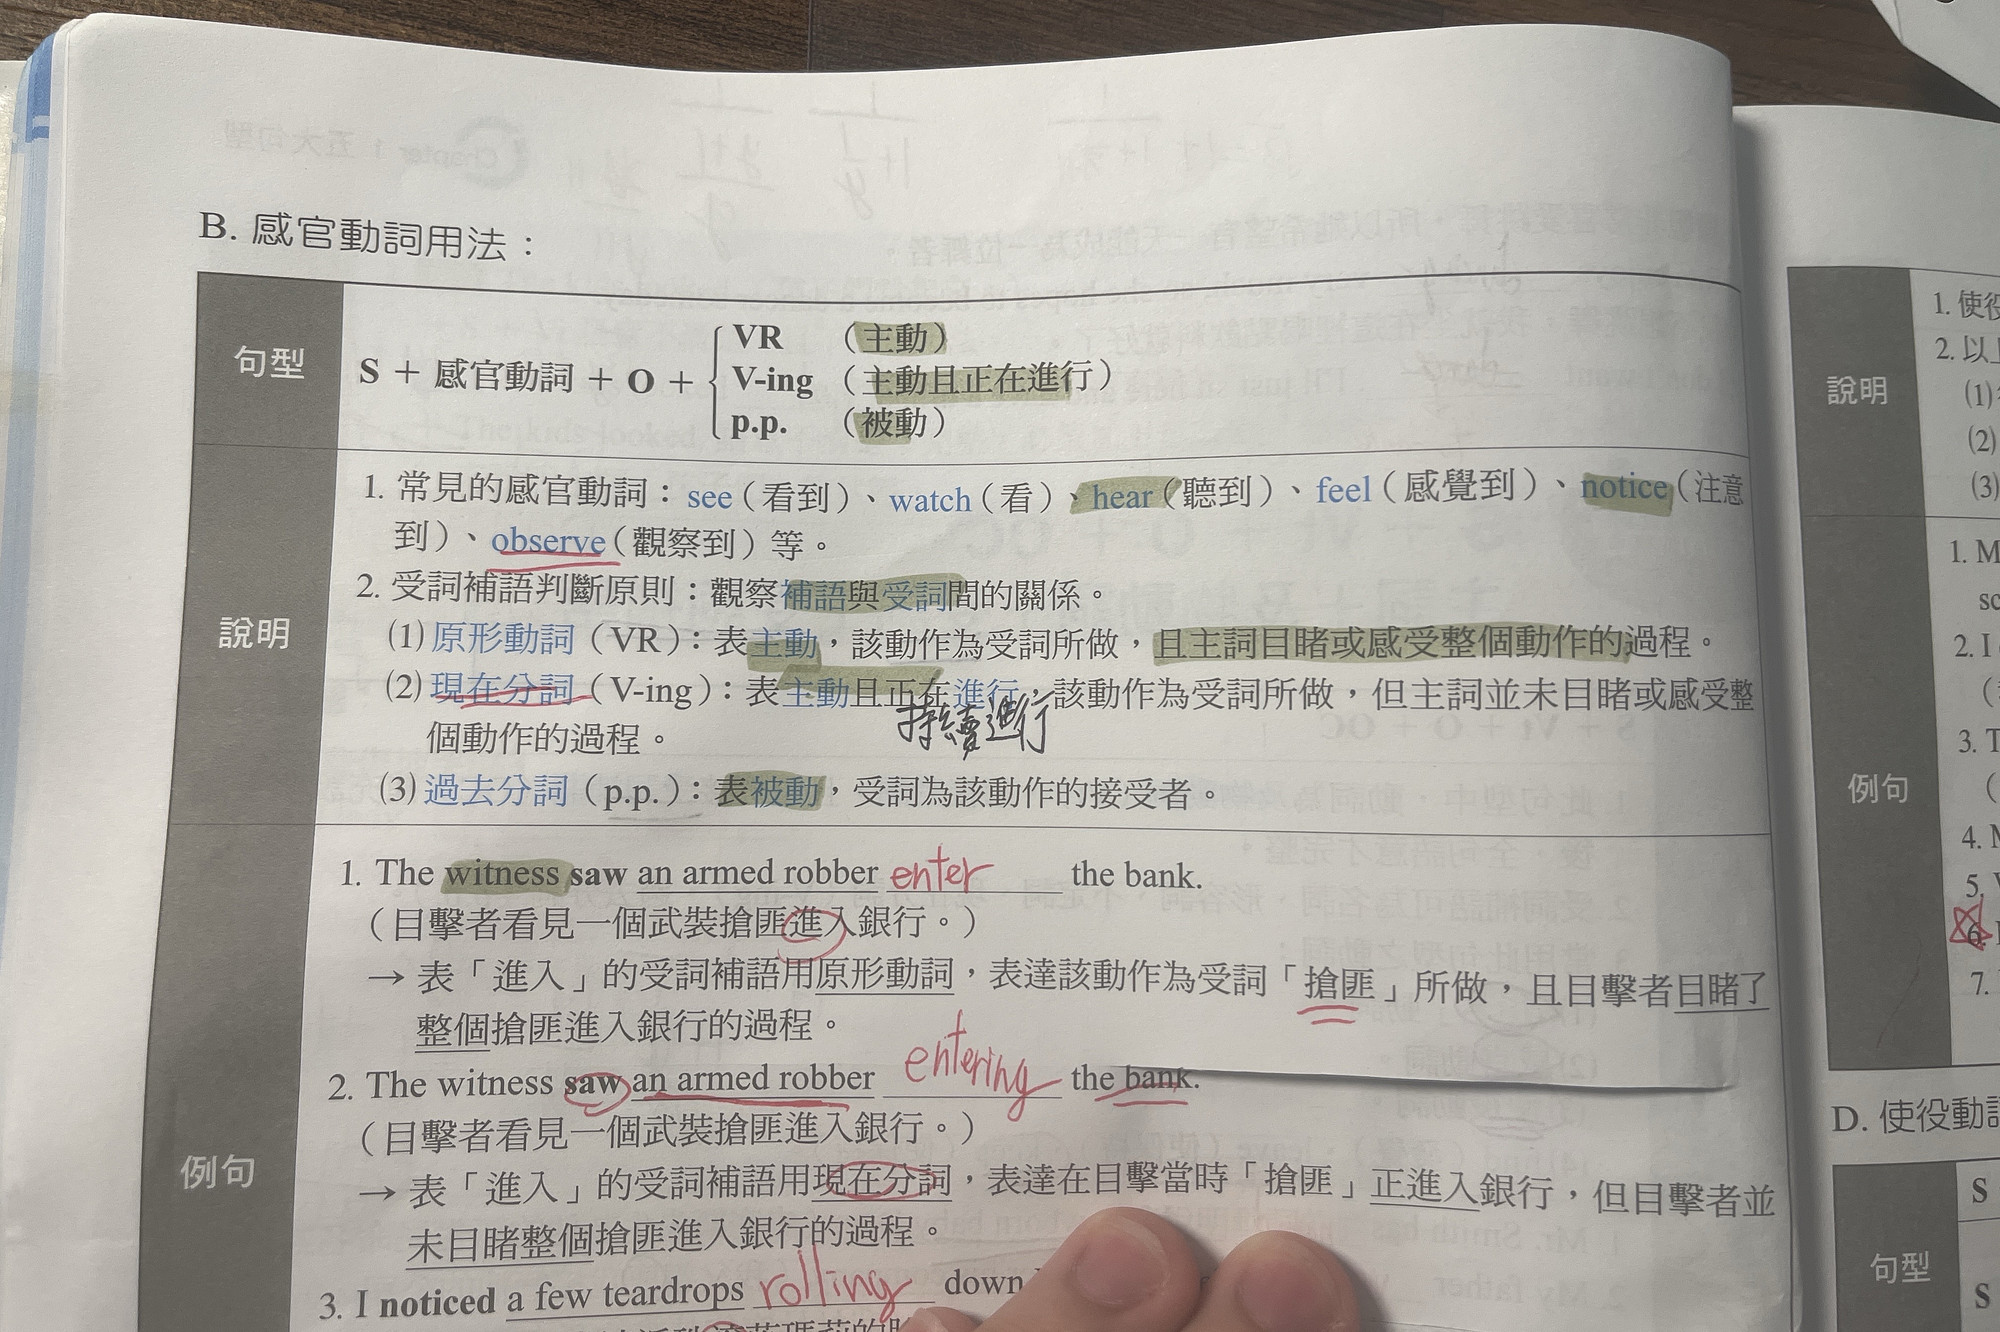 B. 感官動詞用法：
句型
S + 感官動詞 + O +
VR （主動）
V-ing （主動且正在進行）
p.p. （被動）
說明
1. 常見的感官動詞：see（看到）、watch（看）、hear（聽到）、feel（感覺到）、notice（注意
到）、observe（觀察到）等。
2. 受詞補語判斷原則：觀察補語與受詞間的關係。
(1) 原形動詞（VR）：表主動，該動作為受詞所做，且主詞目睹或感受整個動作的過程。
(2) 現在分詞（V-ing）：表主動且正在進行，該動作為受詞所做，但主詞並未目睹或感受整
持續進行
個動作的過程。
(3) 過去分詞（p.p.）：表被動，受詞為該動作的接受者。
例句
1. The witness saw an armed robber enter the bank.
（目擊者看見一個武裝搶匪進入銀行。）
→ 表「進入」的受詞補語用原形動詞，表達該動作為受詞「搶匪」所做，且目擊者目睹了
整個搶匪進入銀行的過程。
2. The witness saw an armed robber entering the bank.
（目擊者看見一個武裝搶匪進入銀行。）
→ 表「進入」的受詞補語用現在分詞，表達在目擊當時「搶匪」正進入銀行，但目擊者並
未目睹整個搶匪進入銀行的過程。
3. I noticed a few teardrops rolling down
說明
1. 使役
2. 以上
(1)
(2)
(3)
例句
1. M
sc
2. I
3. T
4. M
5.
6.
7.
D. 使役動詞
句型
S
S